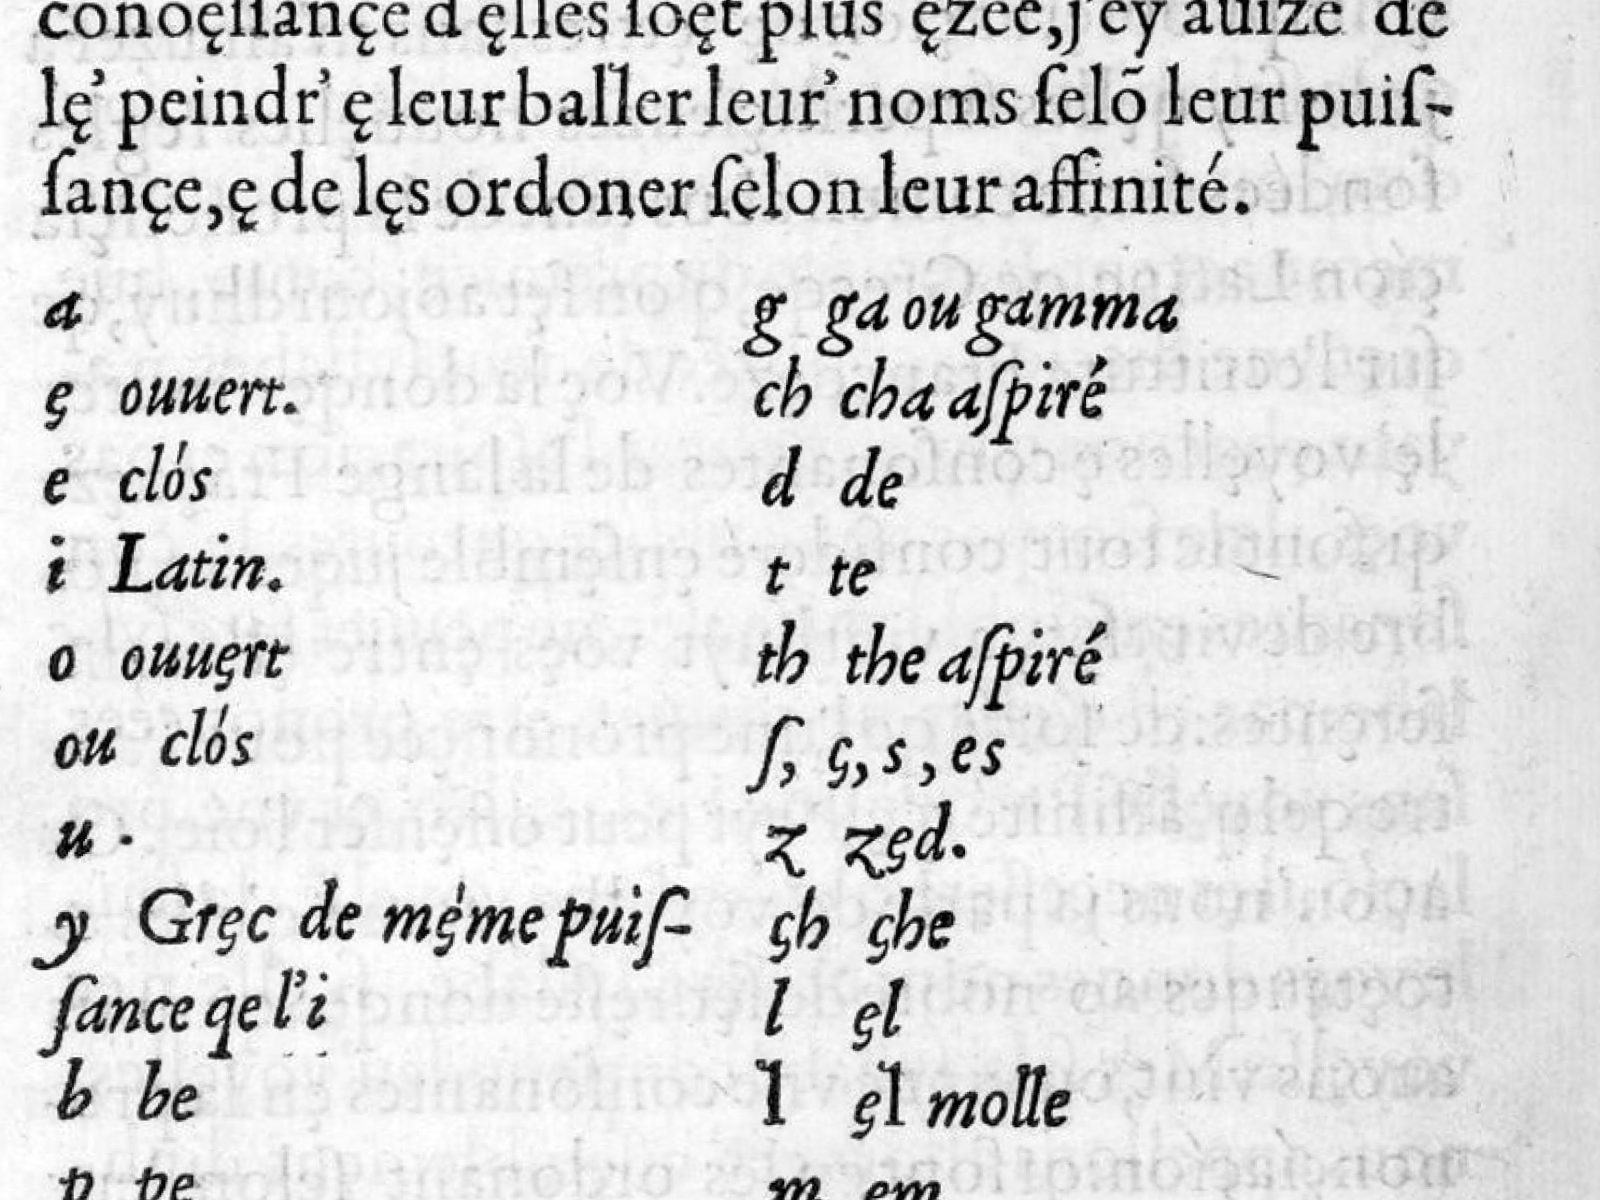 conoęſſançe d'ęlles ſoęt plus ęzée, j'ey auizé de
lę' peindr' ę leur baller leur' noms ſelõ leur puiſ-
ſançe, ę de lęs ordoner ſelon leur affinité.
a
ę ouuert.
e clós
i Latin.
o ouuęrt
ou clós
u .
y Gręc de mę́me puiſ-
ſance qe l'i
b be
p pe
g ga ou gamma
ch cha aſpiré
d de
t te
th the aſpiré
ſ, ç, s, es
z zęd.
çh çhe
l ęl
l ęl molle
m em